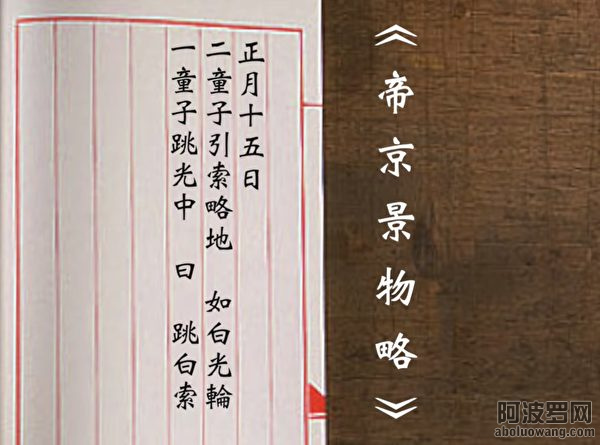 《帝京景物略》
正月十五日
二童子引索略地 如白光輪
一童子跳光中 曰 跳白索
阿波罗网
aboluowang.com